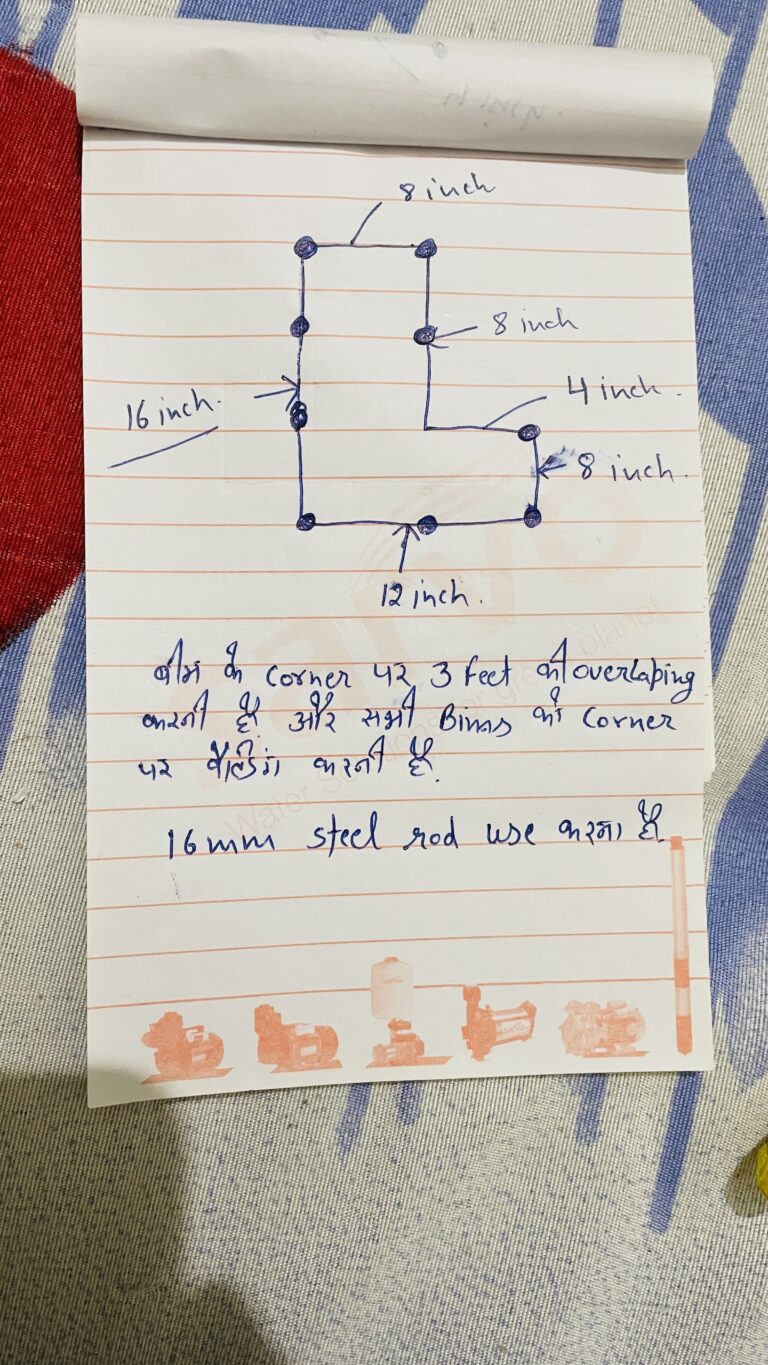 8 inch
8 inch
4 inch.
16 inch.
8 inch.
12 inch.
बीम के corner पर 3 feet की overlaping
करनी है और सभी Bims को corner
पर वेल्डिंग करनी है.
16 mm steel rod use करना है.